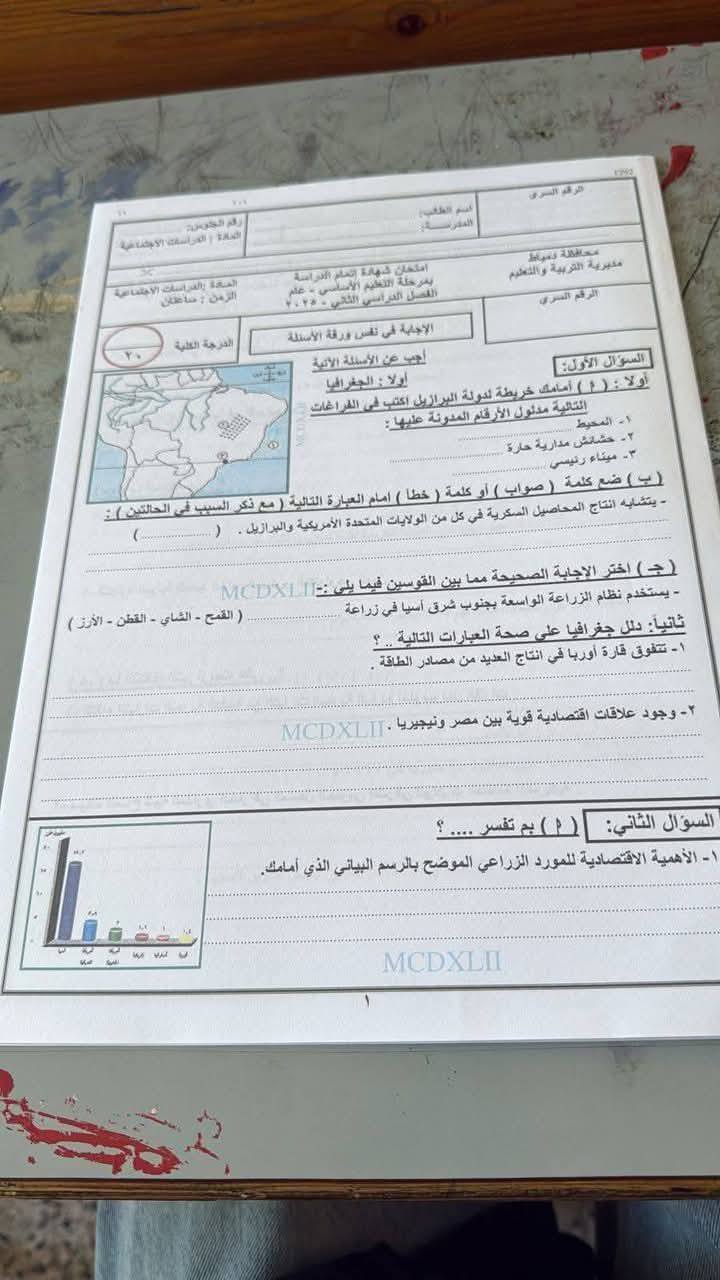 الرقم السرى
اسم الطالب:
المدرسة:
رقم الجلوس:
المادة : الدراسات الاجتماعية
محافظة دمياط
مديرية التربية والتعليم
امتحان شهادة إتمام الدراسة
بمرحلة التعليم الأساسي - عام
الفصل الدراسي الثاني - ٢٠٢٥
المادة :الدراسات الاجتماعية
الزمن : ساعتان
الرقم السرى
الإجابة في نفس ورقة الأسئلة
الدرجة الكلية
٢٠
السؤال الأول:
أجب عن الأسئلة الآتية
أولا : الجغرافيا
أولا : ( أ ) أمامك خريطة لدولة البرازيل اكتب في الفراغات
التالية مدلول الأرقام المدونة عليها :
١- المحيط
٢- حشائش مدارية حارة
٣- ميناء رئيسي
MCDXLII
( ب ) ضع كلمة ( صواب ) أو كلمة ( خطأ ) امام العبارة التالية ( مع ذكر السبب في الحالتين ) :
- يتشابه انتاج المحاصيل السكرية في كل من الولايات المتحدة الأمريكية والبرازيل . ( )
( جـ ) اختر الإجابة الصحيحة مما بين القوسين فيما يلي :-
MCDXLII
- يستخدم نظام الزراعة الواسعة بجنوب شرق آسيا في زراعة ( القمح - الشاي - القطن - الأرز )
ثانياً: دلل جغرافيا على صحة العبارات التالية .. ؟
١- تتفوق قارة أوربا في انتاج العديد من مصادر الطاقة .
٢- وجود علاقات اقتصادية قوية بين مصر ونيجيريا .
MCDXLII
السؤال الثاني: ( أ ) بم تفسر .... ؟
١- الأهمية الاقتصادية للمورد الزراعي الموضح بالرسم البياني الذي أمامك.
MCDXLII
١